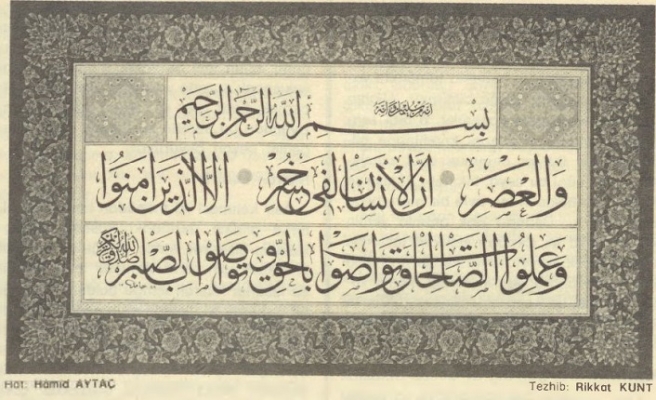 بِسْمِ اللهِ الرَّحْمٰنِ الرَّحِيمِ
وَالْعَصْرِ اِنَّ الْاِنْسَانَ لَفِى خُسْرٍ اِلَّا الَّذِينَ اٰمَنُوا
وَعَمِلُوا الصَّالِحَاتِ وَتَوَاصَوْا بِالْحَقِّ وَتَوَاصَوْا بِالصَّبْرِ
Hat: Hâmid AYTAÇ
Tezhib: Rikkat KUNT